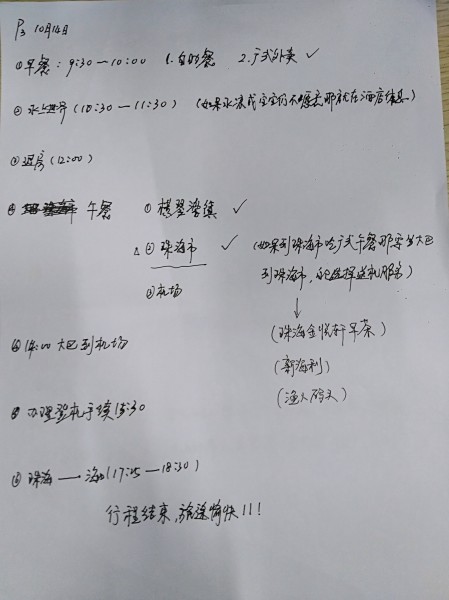 P3 10月14日
①早餐：9:30—10:00 1.自助餐 2.广式外卖 ✓
② 水上 (10:30—11:30) (如果水凉或宝宝们不愿意那就在酒店休息)
③退房(12:00)
④ 午餐 ① 横琴 ✓
△ ② 珠海市 ✓ (如果到珠海市吃广式午餐那要坐大巴
到珠海市，
③ 机场
↓
(珠海金悦轩早茶)
⑤ 14:00 大巴到机场
(新海利)
(渔人码头)
⑥ 办理登机手续15:30
⑦ 珠海 — 海口(17:25—18:30)
行程结束,旅途愉快!!!